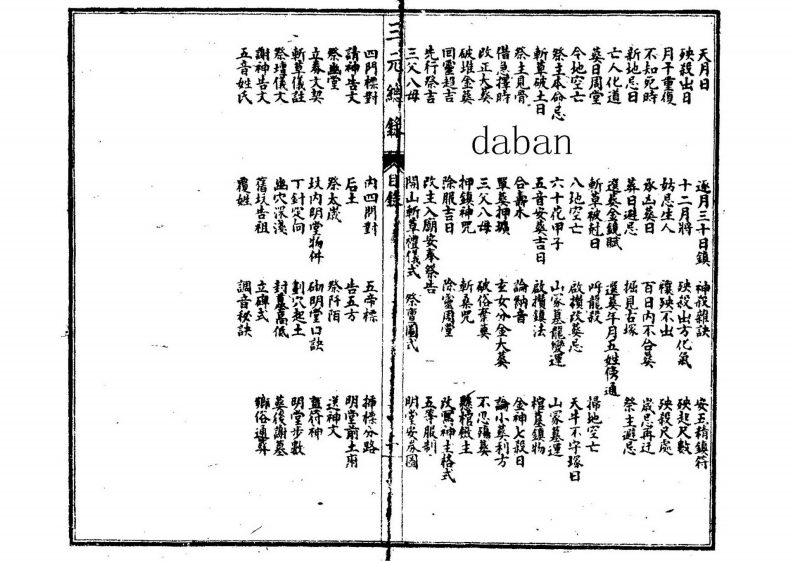 天月日 逐月三十日鎮 神殺雜訣 安五精鎮符
殃殺出日 十二月將 殃殺出方化氣 殃起尺數
月干重復 妨忌生人 禳殃不出 殃殺尺處
不知死時 承凶葬日 百日內不合葬 歲忌再迁
新地忌日 葬日避忌 掘見古塚 祭主避忌
亡人化道 選葬金鏡賦 選葬年月五姓傍通
葬日周堂 斬草破社日 呼龍殺 掃地空亡
今地空亡 八地空亡 啟攢改葬忌 天牛不守塚日
祭主本命忌 六十花甲子 山家墓龍變運 山家墓運
斬草破土日 五音安葬吉日 啟攢鎮法 棺墓鎮物
祭主見骨 合壽木 論納音 金神七殺日
借急擇時 單葬押壙 室女分金大葬 論小葬利方
改正大葬 三父八母 破俗葬 不忍殤葬
破堆金葬 押鎮神咒 斬桑咒 懸棺主
回靈趨吉 除服吉日 除靈周堂 改寫神主格式
先行祭吉 改主入廟安奉祭告 五等服制
三父八母 開山斬草禮儀式 祭圖式 明堂安券圖
daban
三元總錄 目錄
四門標對 內四門對 五帝標 掃標分路
請神告文 后土 告五方 明堂前土府
祭幽堂 祭太歲 祭阡陌 送神文
立券文契 坟內明堂物件 砌明堂口訣 蓋符神
斬草儀註 丁針定向 劃穴起土 明堂步數
祭壇儀文 幽穴深淺 封墓高低 墓後謝墓
謝神告文 舊坟告祖 立碑式 鄉俗通弊
五音姓氏 覆姓 調音秘訣